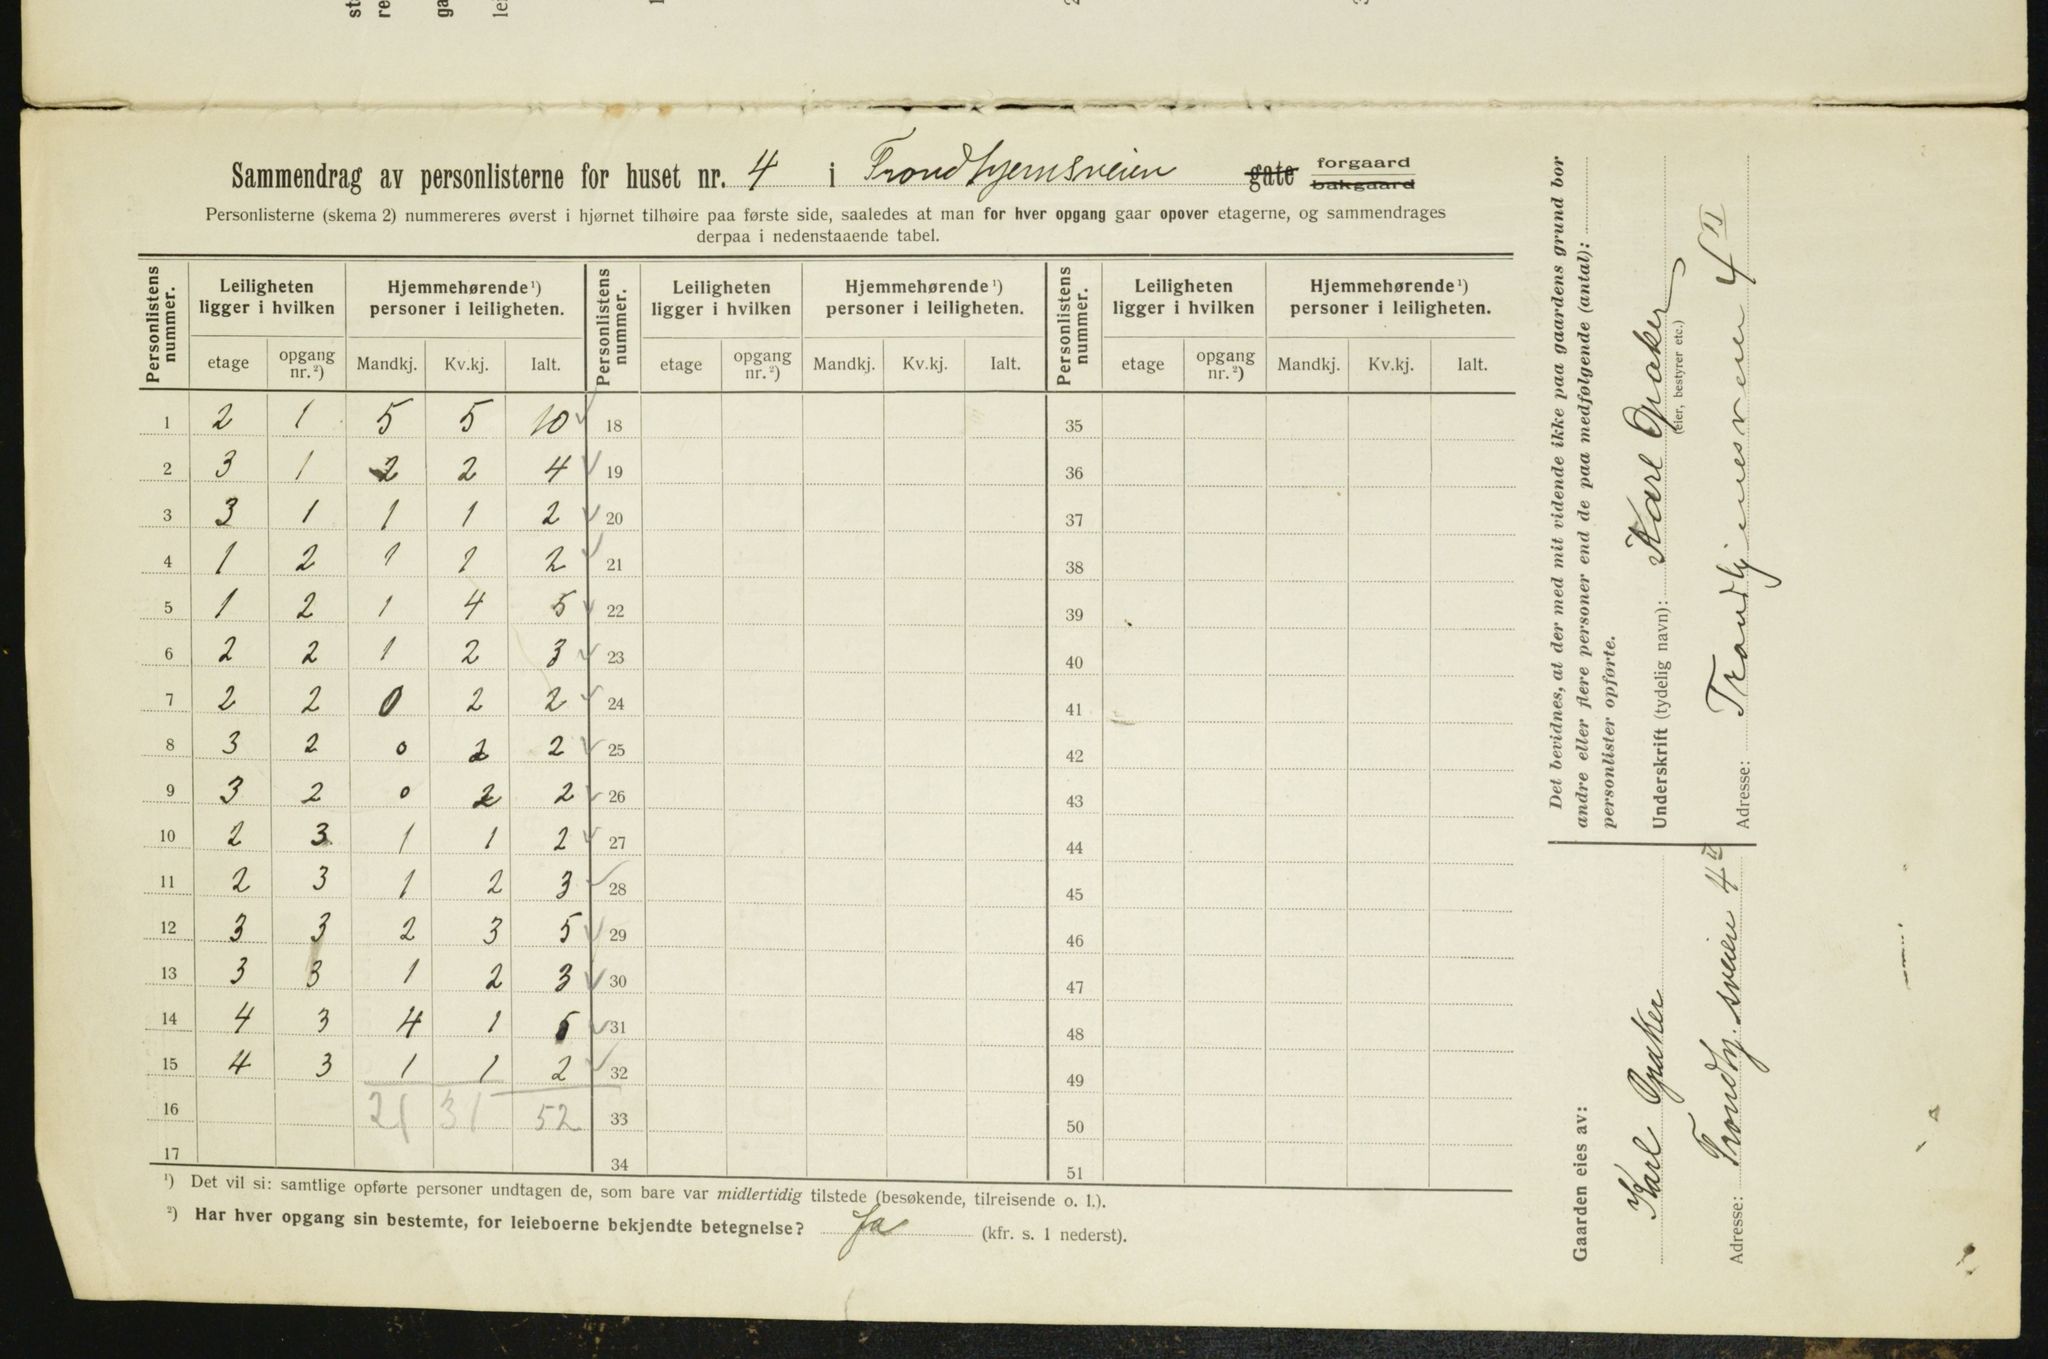 Sammendrag av personlisterne for huset nr. 4 i Trondhjemsveien gate forgaard bakgaard
Personlisterne (skema 2) nummereres øverst i hjørnet tilhøire paa første side, saaledes at man for hver opgang gaar opover etagerne, og sammendrages
derpaa i nedenstaaende tabel.
Personlistens nummer. Leiligheten ligger i hvilken Hjemmehørende ¹) personer i leiligheten. Personlistens nummer. Leiligheten ligger i hvilken Hjemmehørende ¹) personer i leiligheten. Personlistens nummer. Leiligheten ligger i hvilken Hjemmehørende ¹) personer i leiligheten.
etage opgang nr. ²) Mandkj. Kv.kj. Ialt. etage opgang nr. ²) Mandkj. Kv.kj. Ialt. etage opgang nr. ²) Mandkj. Kv.kj. Ialt.
1 2 1 5 5 10 18 35
2 3 1 2 2 4 19 36
3 3 1 1 1 2 20 37
4 1 2 1 1 2 21 38
5 1 2 1 4 5 22 39
6 2 2 1 2 3 23 40
7 2 2 0 2 2 24 41
8 3 2 0 2 2 25 42
9 3 2 0 2 2 26 43
10 2 3 1 1 2 27 44
11 2 3 1 2 3 28 45
12 3 3 2 3 5 29 46
13 3 3 1 2 3 30 47
14 4 3 4 1 5 31 48
15 4 3 1 1 2 32 49
16 21 31 52 33 50
17 34 51
¹) Det vil si: samtlige opførte personer undtagen de, som bare var midlertidig tilstede (besøkende, tilreisende o. l.).
²) Har hver opgang sin bestemte, for leieboerne bekjendte betegnelse? Ja (kfr. s. 1 nederst).
Det bevidnes, at der med mit vidende ikke paa gaardens grund bor
andre eller flere personer end de paa medfølgende (antal):
personlister opførte.
Underskrift (tydelig navn): Karl Opaker
(eier, bestyrer etc.)
Adresse: Trondhjemsveien 4 II
Gaarden eies av:
Karl Opaker
Adresse: Trondhj.sveien 4 II